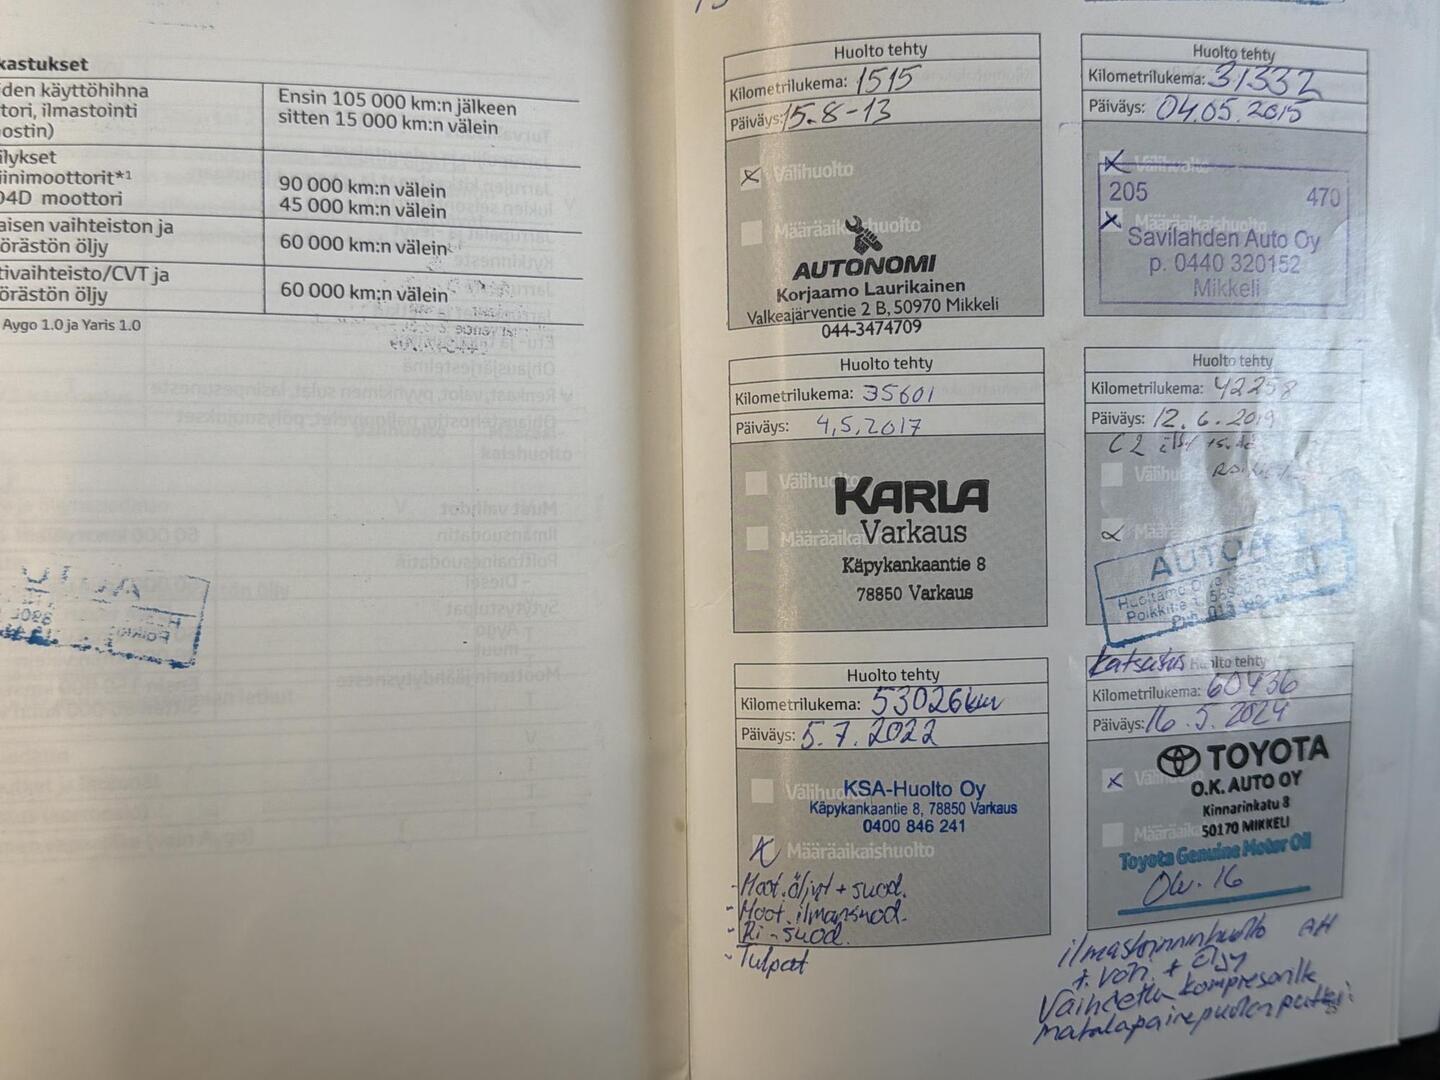 kastukset
iden käyttöhihna
tori, ilmastointi
ostin)
Ensin 105 000 km:n jälkeen
sitten 15 000 km:n välein
ilykset
iinimoottorit*1
04D moottori
90 000 km:n välein
45 000 km:n välein
aisen vaihteiston ja
örästön öljy
60 000 km:n välein
tivaihteisto/CVT ja
örästön öljy
60 000 km:n välein
Aygo 1.0 ja Yaris 1.0
Huolto tehty
Kilometrilukema: 1515
Päiväys: 15.8-13
x Välihuolto
Määräaikaishuolto
AUTONOMI
Korjaamo Laurikainen
Valkeajärventie 2 B, 50970 Mikkeli
044-3474709
Huolto tehty
Kilometrilukema: 31332
Päiväys: 04.05.2015
x Välihuolto
205 470
x Määräaikaishuolto
Savilahden Auto Oy
p. 0440 320152
Mikkeli
Huolto tehty
Kilometrilukema: 35601
Päiväys: 4.5.2017
Välihuolto
KARLA
Varkaus
Määräaikai
Käpykankaantie 8
78850 Varkaus
Huolto tehty
Kilometrilukema: 42258
Päiväys: 12.6.2019
Välihu
Määrä
Huolto tehty
Kilometrilukema: 53026km
Päiväys: 5.7.2022
Välihuo
KSA-Huolto Oy
Käpykankaantie 8, 78850 Varkaus
0400 846 241
x Määräaikaishuolto
- Moot.öljyt + suod.
- Moot.ilmansuod.
- Ri-suod.
- Tulpat
Katsastus Huolto tehty
Kilometrilukema: 60436
Päiväys: 16.5.2024
x Väli
TOYOTA
O.K. AUTO OY
Kinnarinkatu 8
Määräaika
50170 MIKKELI
Toyota Genuine Motor Oil
OW-16
ilmastoinninhuolto AH
+ öljy
Vaihdettu kompresorille
matalapainepuolen putki